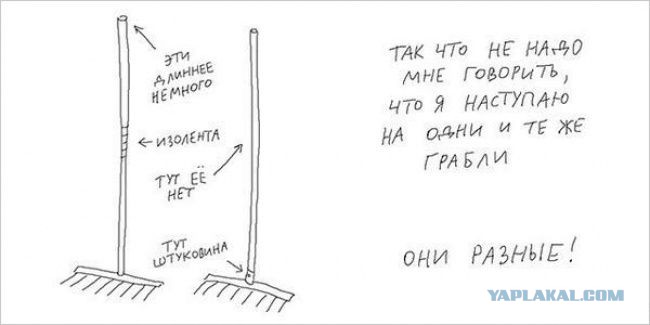 ЭТИ
ДЛИННЕЕ
НЕМНОГО
ИЗОЛЕНТА
ТУТ ЕЁ
НЕТ
ТУТ
ШТУКОВИНА
ТАК ЧТО НЕ НАДО
МНЕ ГОВОРИТЬ,
ЧТО Я НАСТУПАЮ
НА ОДНИ И ТЕ ЖЕ
ГРАБЛИ
ОНИ РАЗНЫЕ!
YAPLAKAL.COM